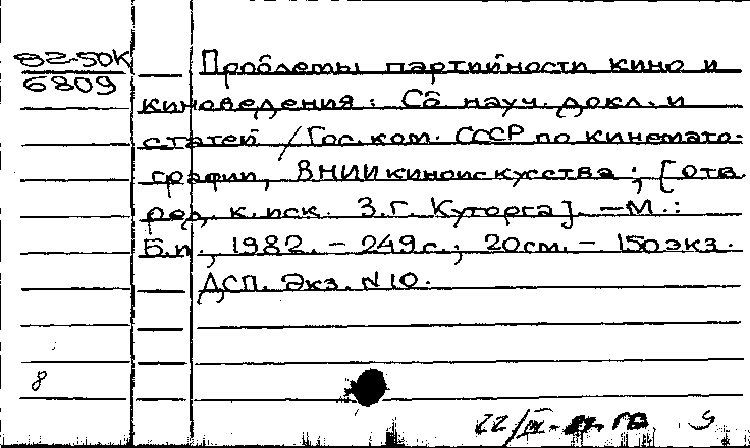 82-50К
6809
Проблемы партийности кино и
киноведения: Сб науч. докл. и
статей / Гос. ком. СССР по кинемато-
графии, ВНИИ киноискусства; [отв.
ред. к. иск. З.Г. Куторга]. — М.:
Б.и., 1982. - 249 с.; 20 см. - 150 экз.
ДСП. Экз. N 10.
8
22/III-